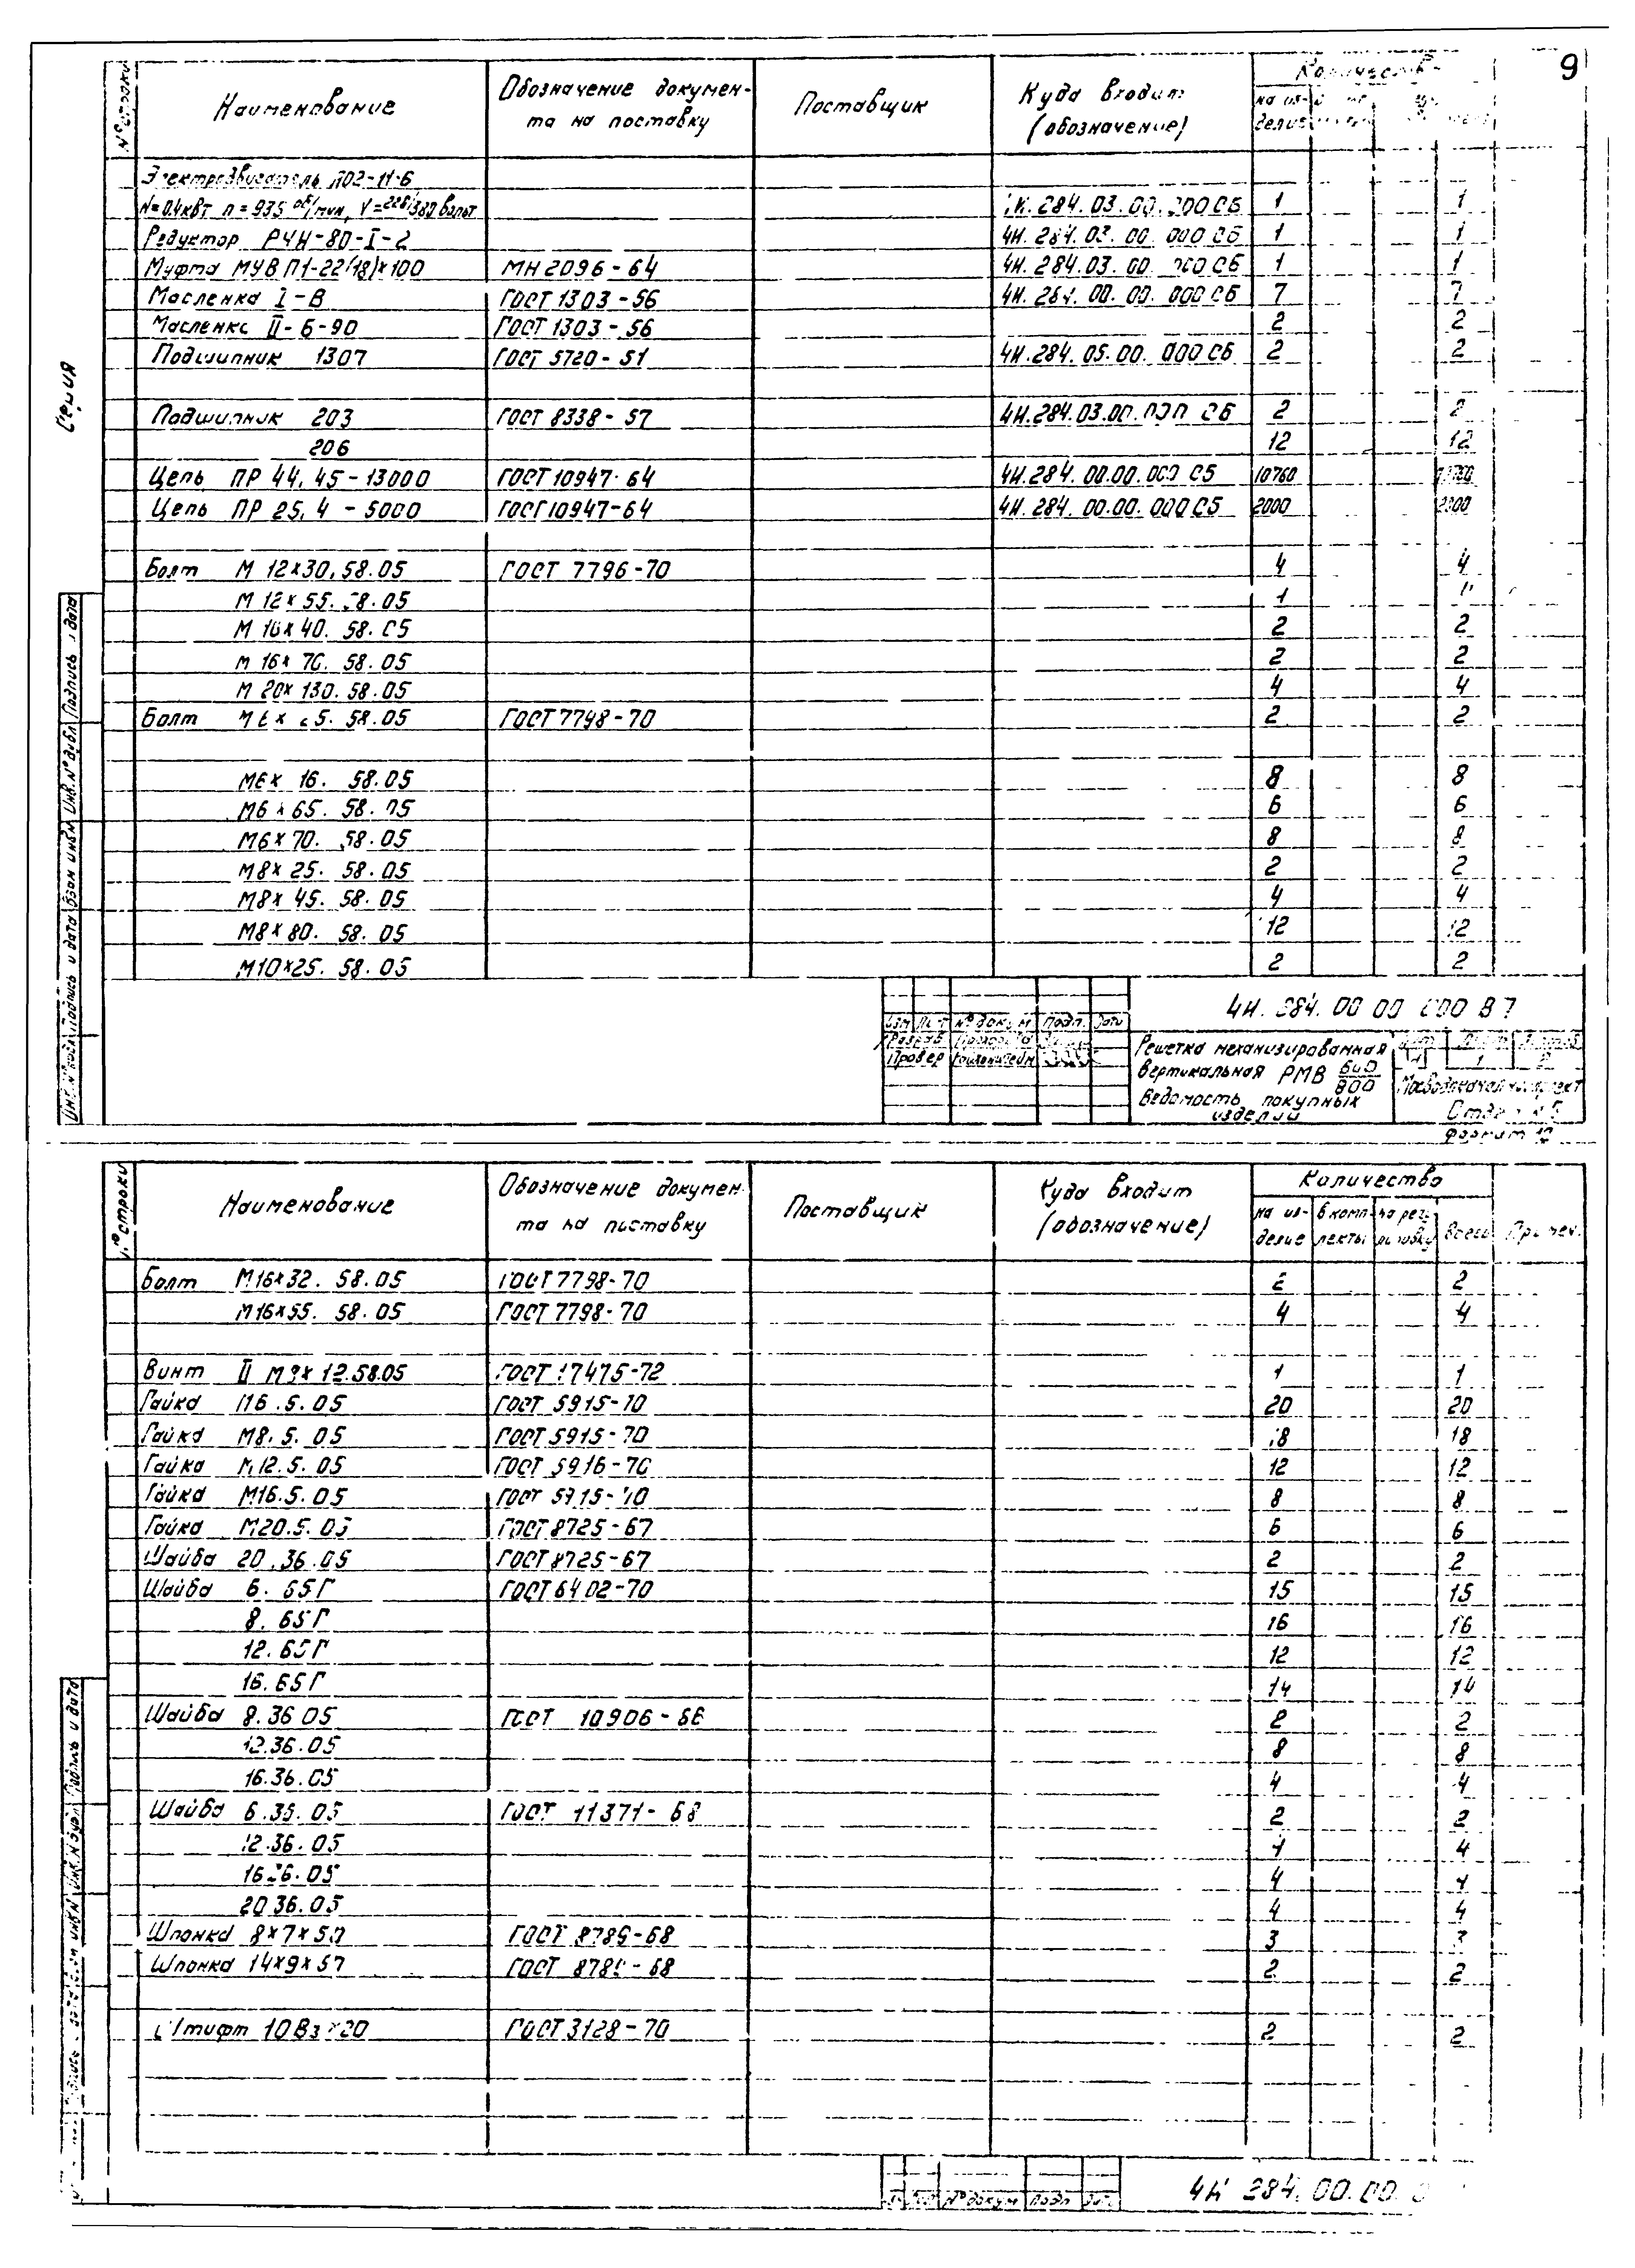 9
Серия
№ строки Наименование Обозначение документа на поставку Поставщик Куда входит (обозначение) Количество
на изделие
Электродвигатель АО2-11-6
N=0.4квт n=935 об/мин, V=220/380 вольт 4И.284.03.00.000СБ 1 1
Редуктор РЧН-80-I-2 4И.284.03.00.000СБ 1 1
Муфта МУВП1-22(18)×100 МН 2096-64 4И.284.03.00.000СБ 1 1
Масленка I-В ГОСТ 1303-56 4И.284.00.00.000СБ 7 7
Масленка II-Б-90 ГОСТ 1303-56 2 2
Подшипник 1307 ГОСТ 5720-51 4И.284.05.00.000СБ 2 2
Подшипник 203 ГОСТ 8338-57 4И.284.03.00.000 СБ 2 2
206 12 12
Цепь ПР 44.45-13000 ГОСТ 10947-64 4И.284.00.00.000 СБ 10760 10760
Цепь ПР 25.4-5000 ГОСТ 10947-64 4И.284.00.00.000СБ 2000 2000
Болт М 12×30.58.05 ГОСТ 7796-70 4 4
М 12×55.58.05
М 16×40.58.05 2 2
М 16×70.58.05 2 2
М 20×130.58.05 4 4
Болт М6× 58.05 ГОСТ 7798-70 2 2
М6×16.58.05 8 8
М6×65.58.05 6 6
М6×70.58.05 8 8
М8×25.58.05 2 2
М8×45.58.05 4 4
М8×80.58.05 12 12
М10×25.58.05 2 2
4И.284.00.00.000 ВП
Изм Лист № докум Подп. Дата
Разраб
Провер
Решетка механизированная
вертикальная РМВ 600/800
Ведомость покупных
изделий
Лист 1 2
Мосводоканалниипроект
Отдел №5
Формат 12
Инв.№подл. Подпись и дата Взам инв№ Инв.№ дубл. Подпись и дата
№ строки Наименование Обозначение документа на поставку Поставщик Куда входит (обозначение) Количество
на изделие в комплекты на регулировку Всего Примеч.
Болт М16×32.58.05 ГОСТ 7798-70 2 2
М16×55.58.05 ГОСТ 7798-70 4 4
Винт II М 12.58.05 ГОСТ 17475-72 1 1
Гайка М6.5.05 ГОСТ 5915-70 20 20
Гайка М8.5.05 ГОСТ 5915-70 18 18
Гайка М12.5.05 ГОСТ 5916-70 12 12
Гайка М16.5.05 ГОСТ 5915-70 8 8
Гайка М20.5.05 ГОСТ 8725-67 6 6
Шайба 20.36.05 ГОСТ 8725-67 2 2
Шайба 6.65Г ГОСТ 6402-70 15 15
8.65Г 16 16
12.65Г 12 12
16.65Г 14 14
Шайба 8.36.05 ГОСТ 10906-66 2 2
12.36.05 8 8
16.36.05 4 4
Шайба 6.36.05 ГОСТ 11371-68 2 2
12.36.05 4 4
16.36.05 4 4
20.36.05 4 4
Шпонка 8×7×50 ГОСТ 8789-68 3 3
Шпонка 14×9×57 ГОСТ 8789-68 2 2
Штифт 10В3×20 ГОСТ 3128-70 2 2
№ докум Подп Дата
4И 284.00.00.